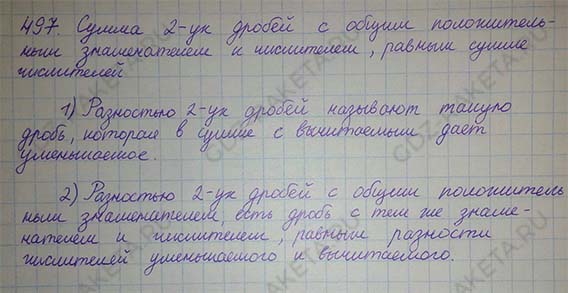 497. Сумма 2-ух дробей с общим положитель-
ным знаменателем и числителем, равным сумме
числителей
1) Разностью 2-ух дробей называют такую
дробь, которая в сумме с вычитаемым дает
уменьшаемое.
2) Разностью 2-ух дробей с общим положитель
ным знаменателем есть дробь с тем же знаме-
нателем и числителем, равным разности
числителей уменьшаемого и вычитаемого.